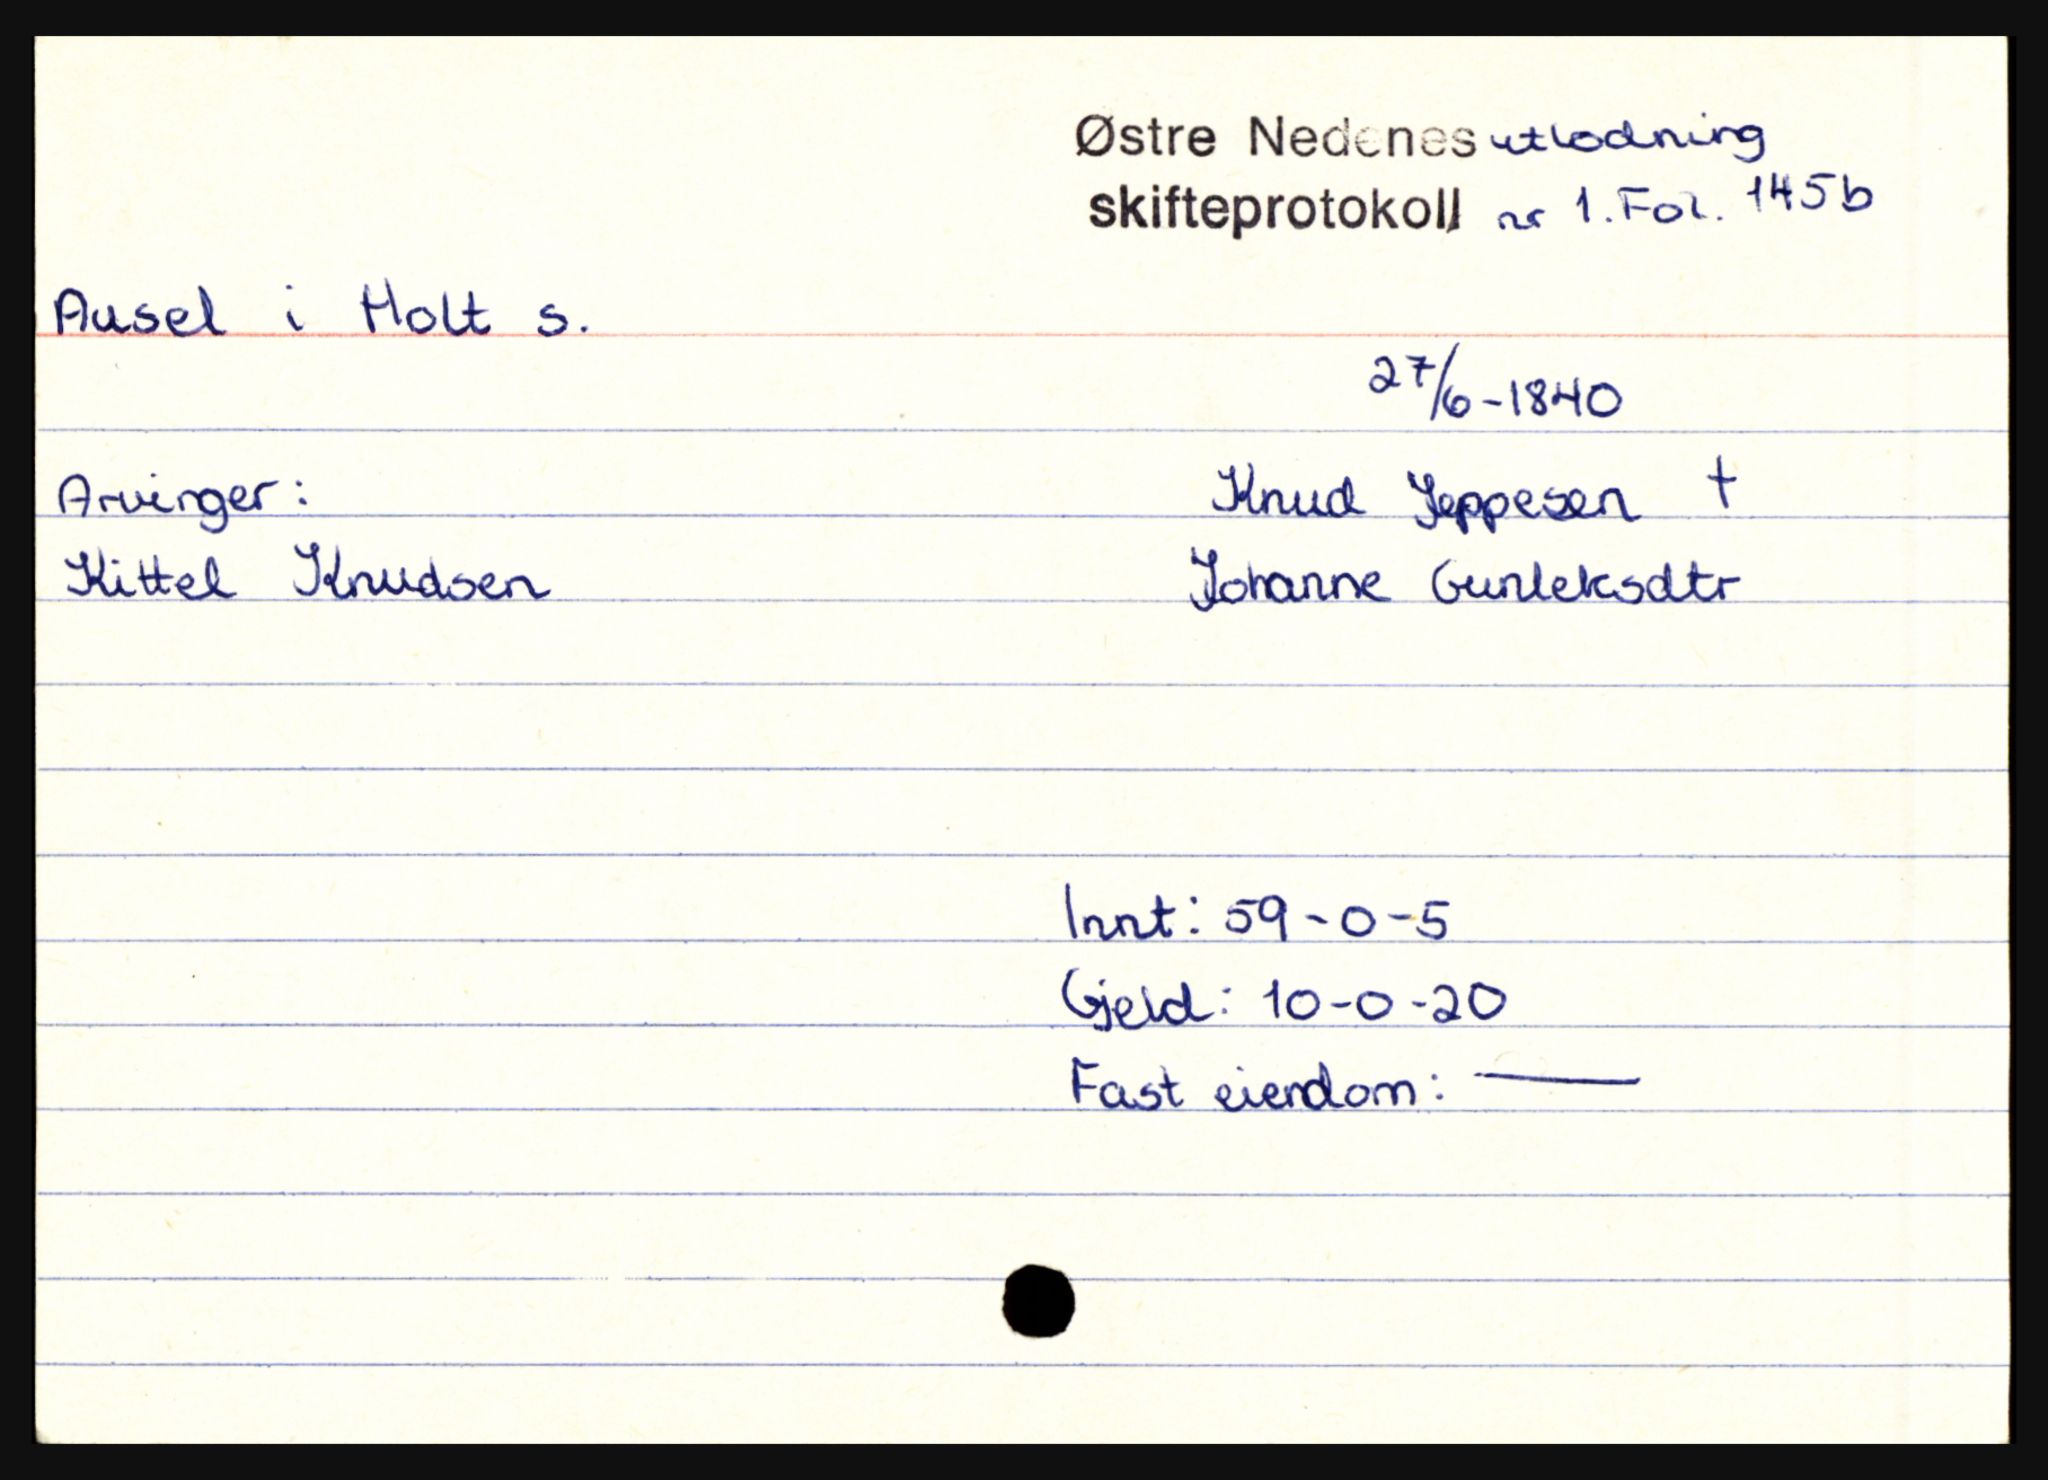 Østre Nedenes utlodning
skifteprotokoll nr 1. Fol. 145b
Ausel i Holt s.
27/6-1840
Arvinger: Knud Jeppesen †
Kittel Knudsen Johanne Gunleksdtr
Innt: 59-0-5
Gjeld: 10-0-20
Fast eiendom: —